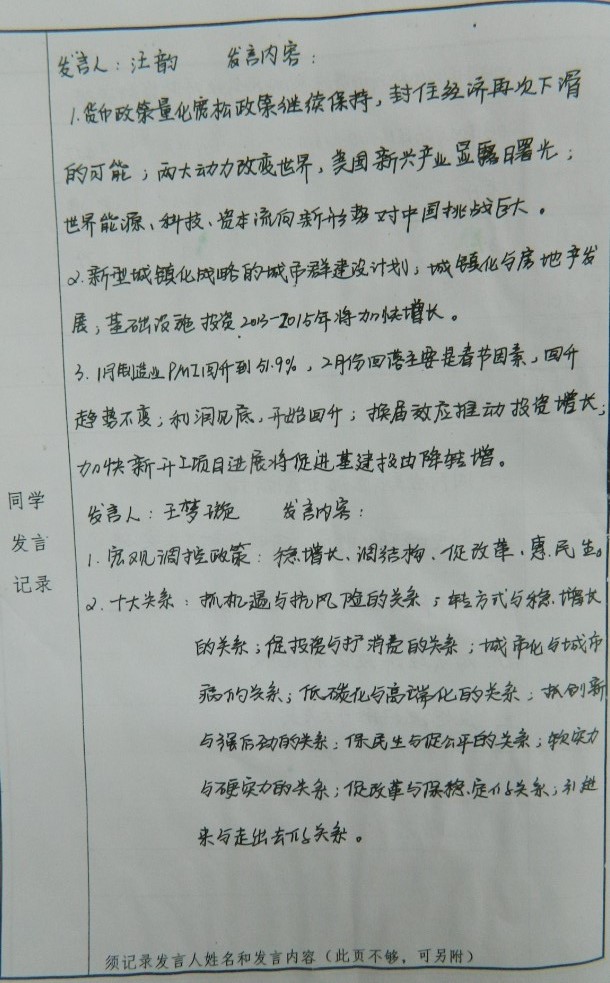 发言人：汪韵　　发言内容：
1.货币政策量化宽松政策继续保持，封住经济再次下滑
的可能；两大动力改变世界，美国新兴产业显露曙光；
世界能源、科技、资本流向新形势对中国挑战巨大。
2.新型城镇化战略的城市群建设计划；城镇化与房地产发
展；基础设施投资2013-2015年将加快增长。
3.1月制造业PMI回升到51.9%，2月份回落主要是春节因素，回升
趋势不变；利润见底，开始回升；换届效应推动投资增长；
加快新开工项目进展将促进基建投由降转增。
同学
发言
记录
发言人：王梦璇　　发言内容：
1.宏观调控政策：稳增长、调结构、促改革、惠民生。
2.十大关系：抓机遇与抗风险的关系；转方式与稳增长
的关系；促投资与扩消费的关系；城市化与城市
病的关系；低碳化与高端化的关系；抓创新
与强后劲的关系；保民生与促公平的关系；软实力
与硬实力的关系；促改革与保稳定的关系；引进
来与走出去的关系。
须记录发言人姓名和发言内容（此页不够，可另附）